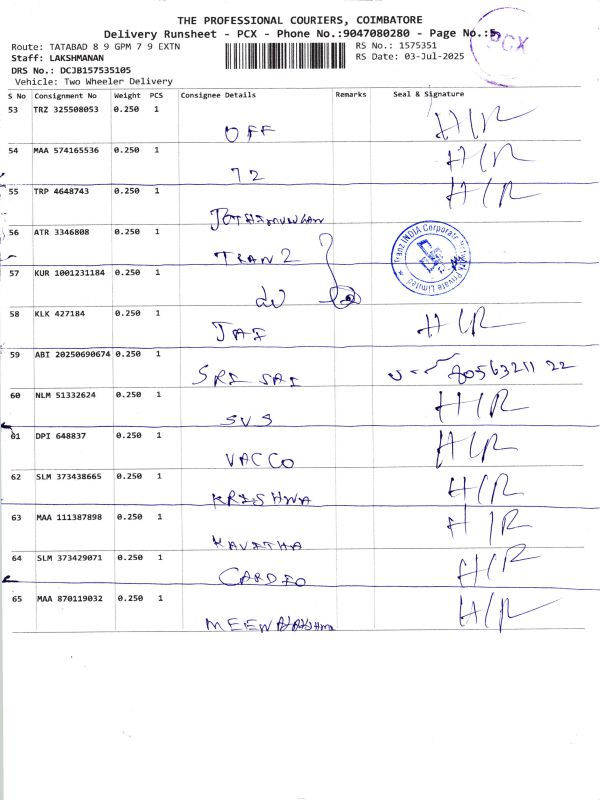 THE PROFESSIONAL COURIERS, COIMBATORE
Delivery Runsheet - PCX - Phone No.:9047080280 - Page No.:5
PCX
Route: TATABAD 8 9 GPM 7 9 EXTN RS No.: 1575351
Staff: LAKSHMANAN RS Date: 03-Jul-2025
DRS No.: DCJB157535105
Vehicle: Two Wheeler Delivery
S No Consignment No Weight PCS Consignee Details Remarks Seal & Signature
53 TRZ 325508053 0.250 1
OFF H/R
54 MAA 574165536 0.250 1
72 H/R
55 TRP 4648743 0.250 1
H/R
56 ATR 3346808 0.250 1
TRAN 2
Tranz INDIA Corporate Network Private Limited
57 KUR 1001231184 0.250 1
58 KLK 427184 0.250 1
JAI H/R
59 ABI 20250690674 0.250 1
SRI SAI
60 NLM 51332624 0.250 1
SVS H/R
61 DPI 648837 0.250 1
VACCO H/R
62 SLM 373438665 0.250 1
KRISHNA H/R
63 MAA 111387898 0.250 1
KAVITHA H/R
64 SLM 373429071 0.250 1
CARDIO H/R
65 MAA 870119032 0.250 1
H/R